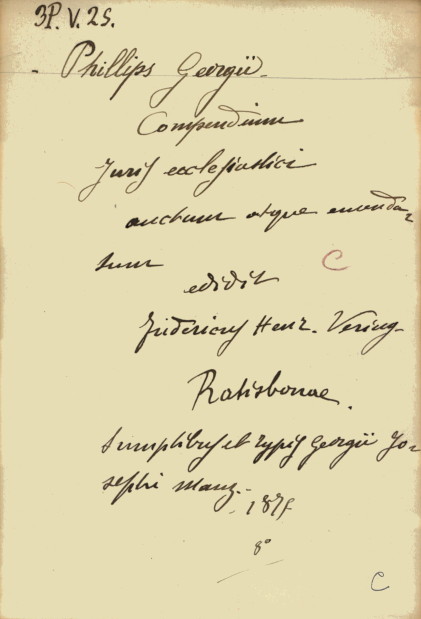 3P. V. 25.
Phillips Georgii
Compendium
Juris ecclesiastici
auctum atque emenda-
tum
C
edidit
Fridericus Henr. Vering
Ratisbonae.
Sumptibus et typis Georgii Jo-
sephi Manz.
1875
8°
C